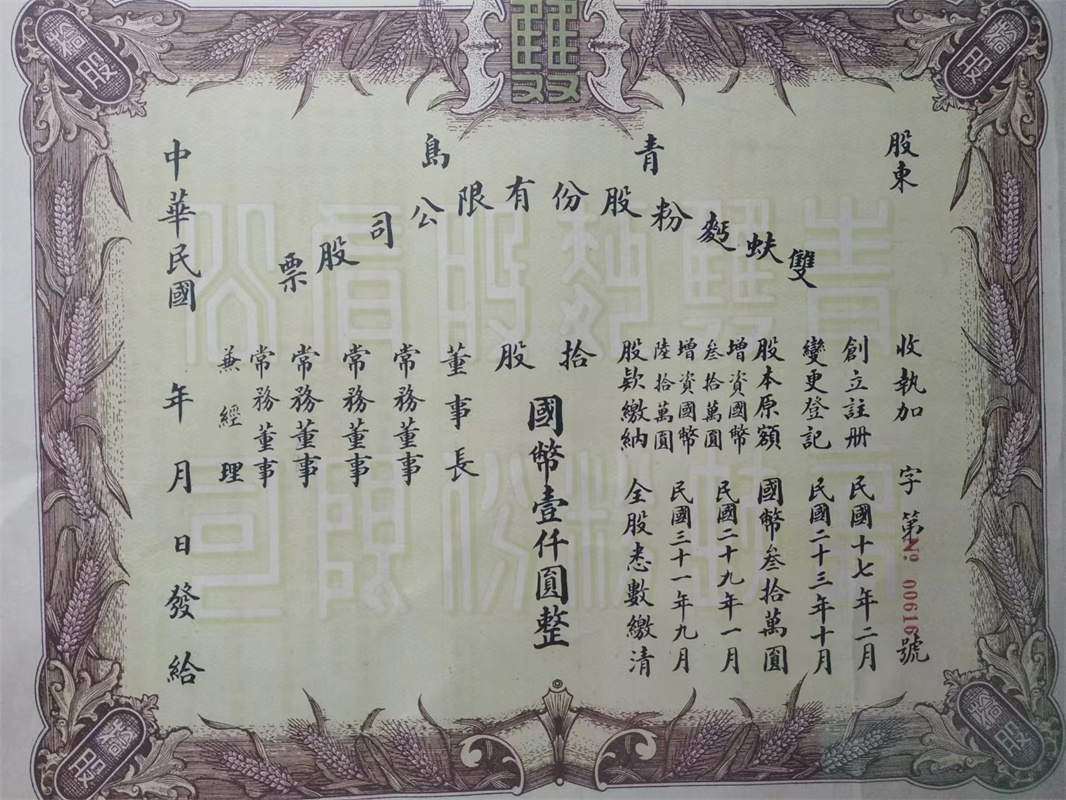 青島
雙蚨麪粉股份有限公司股票
股東 收執加 字第 № 00616 號
創立註册 民國十七年二月
變更登記 民國二十三年十月
股本原額 國幣叁拾萬圓
增資國幣叁拾萬圓 民國二十九年一月
增資國幣陸拾萬圓 民國三十一年九月
股款繳納 全股悉數繳清
拾股
國幣壹仟圓整
董事長
常務董事
常務董事
常務董事
常務董事
兼經理
中華民國 年 月 日發給
拾股
拾股
拾股
拾股